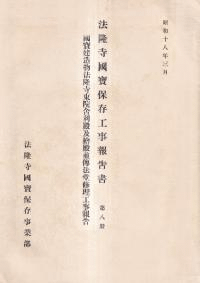 昭和十八年三月
法隆寺國寶保存工事報告書 第八册
國寶建造物法隆寺東院舍利殿及繪殿並傳法堂修理工事報告
法隆寺國寶保存事業部